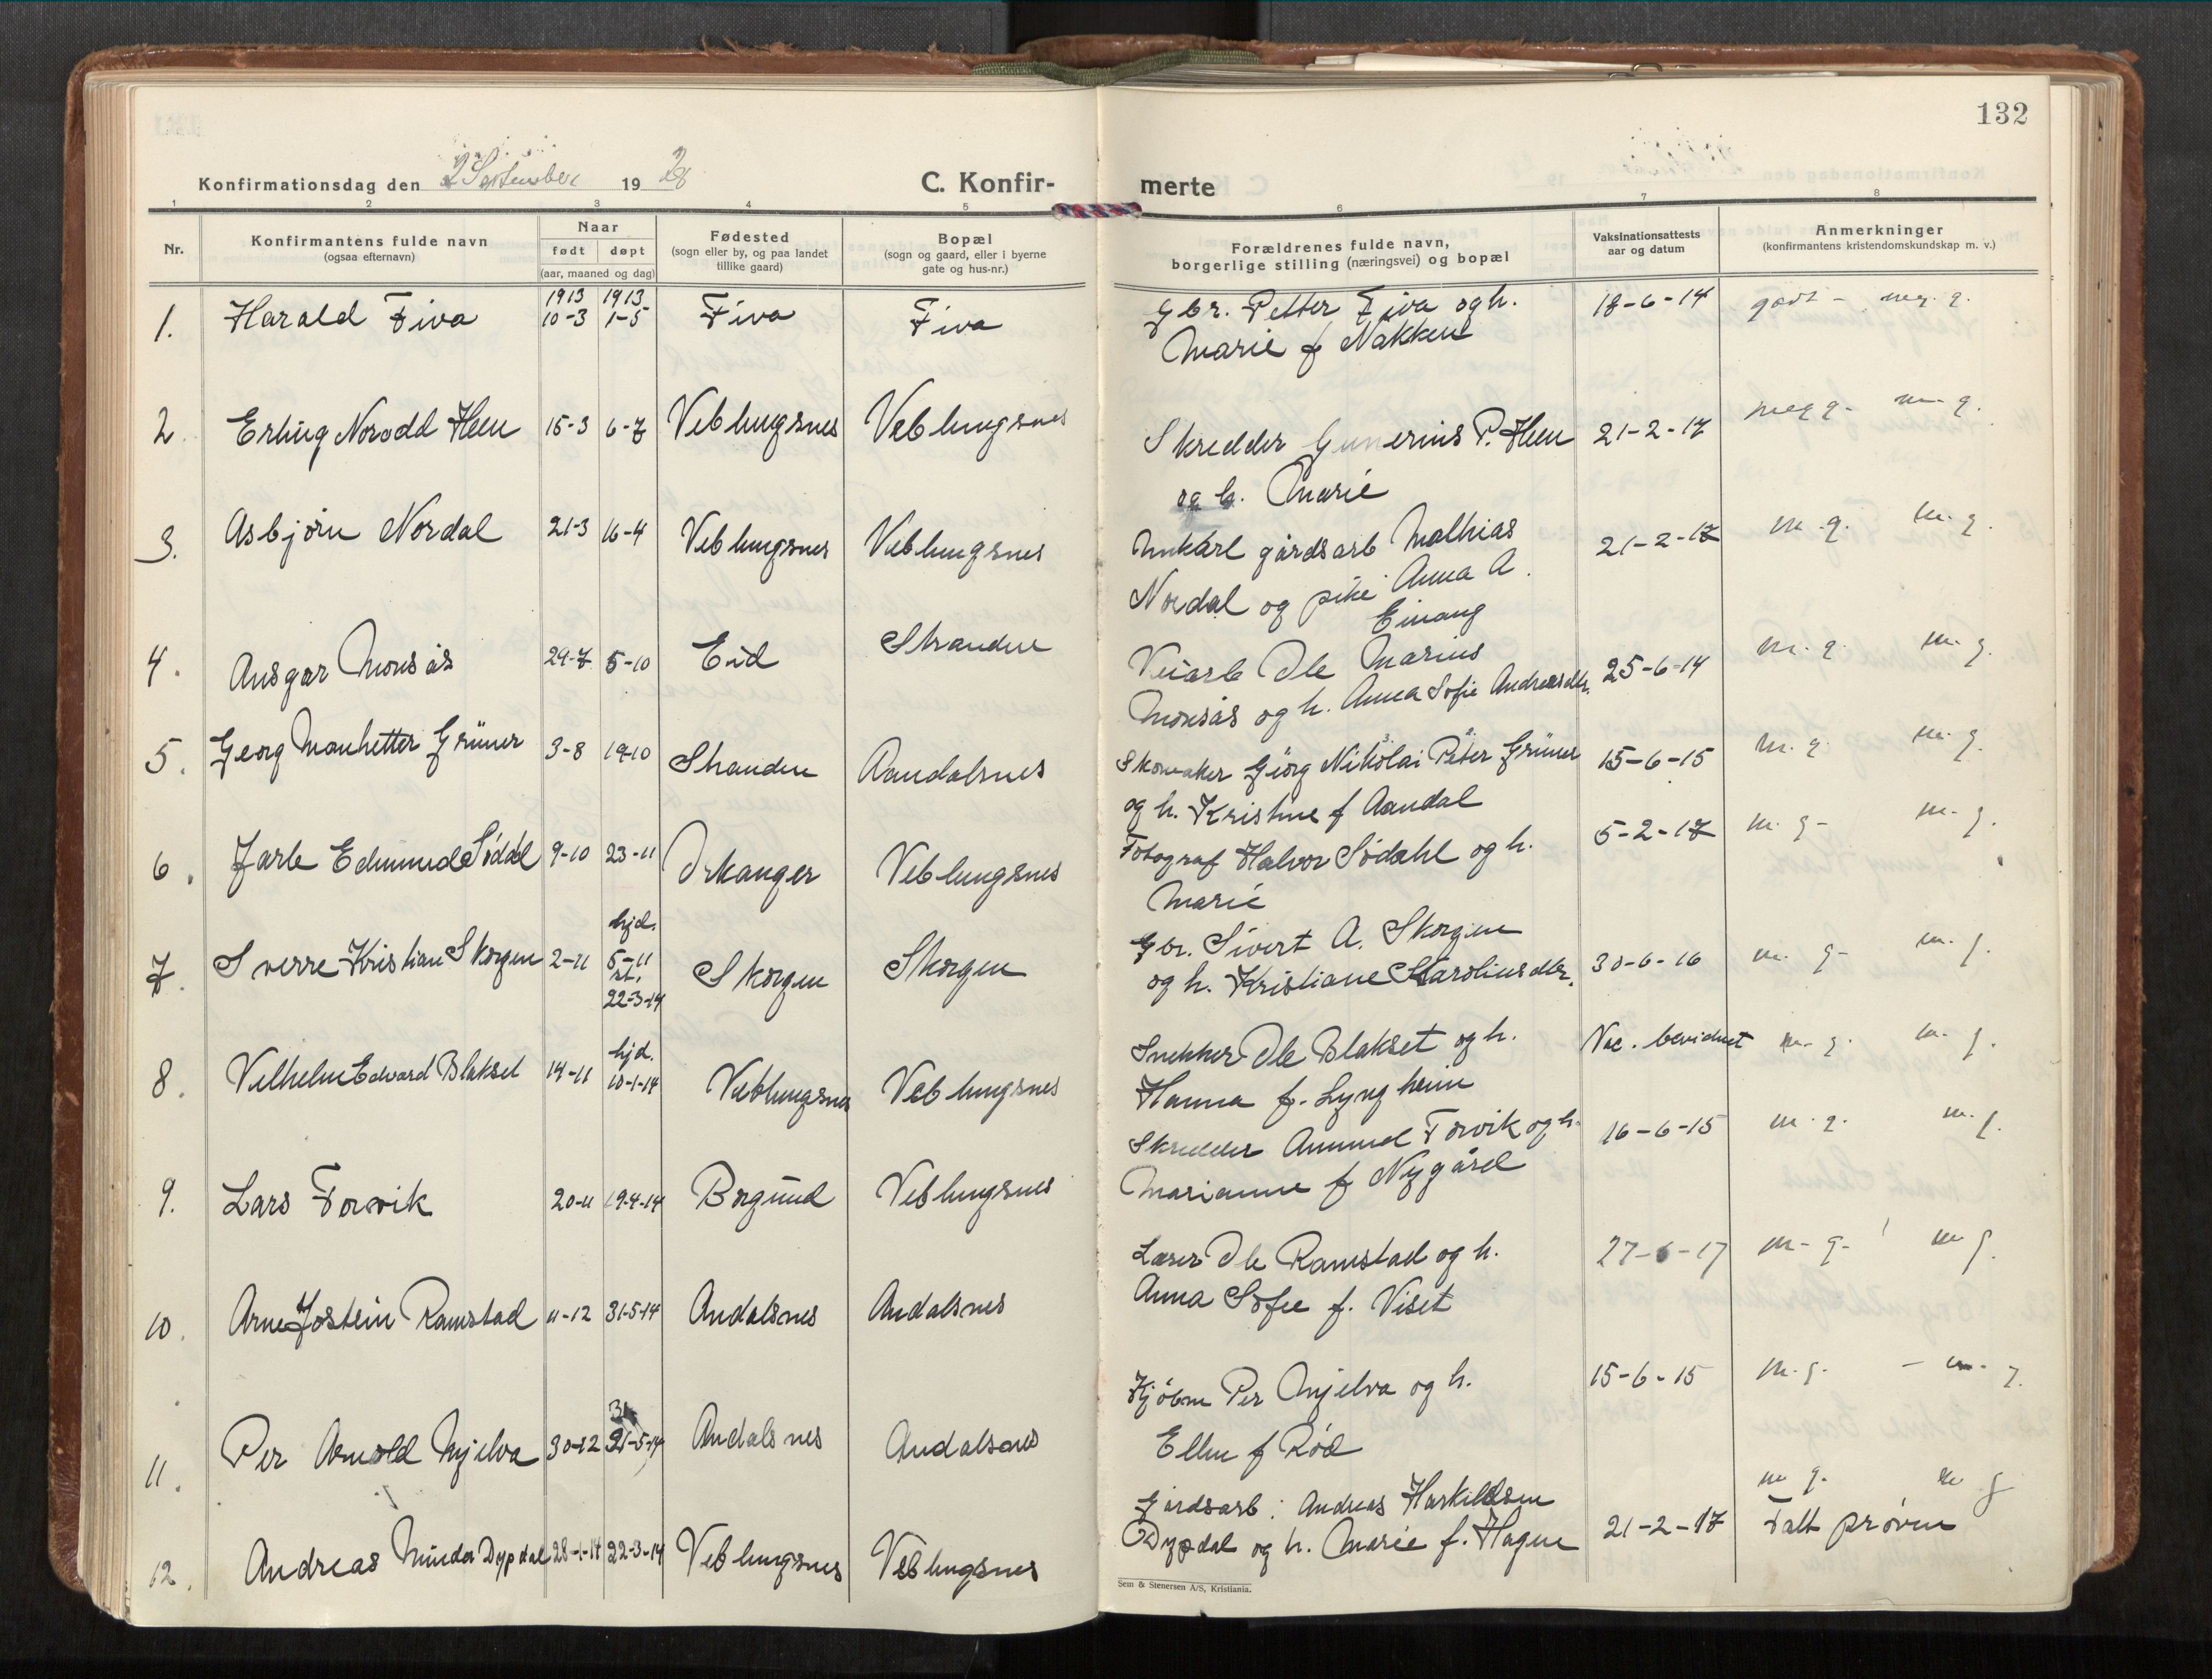 132
Konfirmationsdag den 2 September 1928
C. Konfir-
merte
1 2 3 4 5 6 7 8
Nr.
Konfirmantens fulde navn
(ogsaa efternavn)
Naar
født døpt
(aar, maaned og dag)
Fødested
(sogn eller by, og paa landet
tillike gaard)
Bopæl
(sogn og gaard, eller i byerne
gate og hus-nr.)
Forældrenes fulde navn,
borgerlige stilling (næringsvei) og bopæl
Vaksinationsattests
aar og datum
Anmerkninger
(konfirmantens kristendomskundskap m. v.)
1913 1913
1. Harald Fiva 10-3 1-5 Fiva Fiva Gbr. Petter Fiva og h. 18-6-14 godt - meg. g.
Marie f Nakken
2. Erling Norodd Heen 15-3 6-7 Veblungsnes Veblungsnes Skredder Gunerius P. Heen 21-2-17 meg g- m. g.
og h. Marie
3. Asbjørn Nordal 21-3 16-4 Veblungsnes Veblungsnes Unkarl gårdsarb Mathias 21-2-17 m. g. m. g.
Nordal og pike Anna A.
Einang
4. Ansgar Monsås 29-7 5-10 Eid Stranden Veiarb Ole Marius 25-6-14 m. g. m. g.
Monsås og h. Anna Sofie Andreasdtr.
5. Georg Manhetter Grüner 3-8 19-10 Stranden Aandalsnes Skomaker Georg Nikolai Peter Grüner 15-6-15 m. g. m. g.
og h. Kristine f Aandal
6. Jarle Edmund Södal 9-10 23-11 Orkanger Veblungsnes Fotograf Halvor Södahl og h. 5-2-17 m. g- m. g.
Marie
hjd.
7. Sverre Kristian Skorgen 2-11 5-11 Skorgen Skorgen Gbr. Sivert A. Skorgen 30-6-16 m. g- m. g.
st. og h. Kristiane Karolinsdtr.
22-3-14
hjd.
8. Vilhelm Edvard Blakset 14-11 10-1-14 Veblungsnes Veblungsnes Snekker Ole Blakset og h. Vac. bevidnet m. g. m. g.
Hanna f. Lyngheim
9. Lars Torvik 20-11 19-4-14 Borgund Veblungsnes Skredder Amund Torvik og h. 16-6-15 m. g. m. g.
Marianne f Nygård
10. Arne Jostein Ramstad 11-12 31-5-14 Andalsnes Andalsnes Lærer Ole Ramstad og h. 27-6-17 m- g- m g.
Anna Sofie f. Viset
31
11. Per Arnold Mjelva 30-12 21-5-14 Andalsnes Andalsnes Kjøbm Per Mjelva og h. 15-6-15 m. g. - m. g.
Ellen f Rød
12. Andreas Minda Dypdal 28-1-14 22-3-14 Veblungsnes Veblungsnes Gårdsarb: Andreas Harkildsen 21-2-17 m g. m g
Dypdal og h. Marie f. Hagen Falt prøven
Sem & Stenersen A/S, Kristiania.